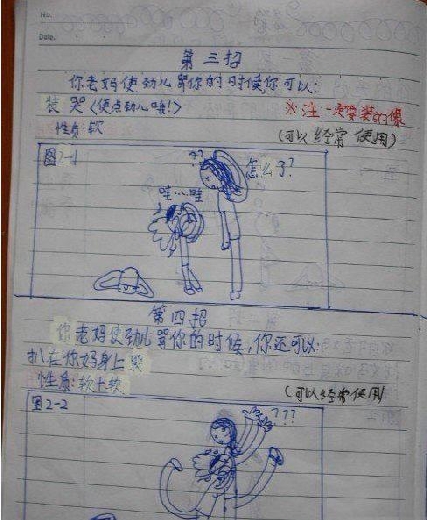 No.
Date.
第三招
你老妈使劲儿羿你的时候你可以:
装哭〈使点劲儿哦!〉
※注一定要装的像
性质:软
(可以经常使用)
图2-1
??
怎么了?
哇…哇
第四招
你老妈使劲儿羿你的时候,你还可以:
扒在你妈身上哭
性质:软上软
(可以经常使用)
图2-2
???